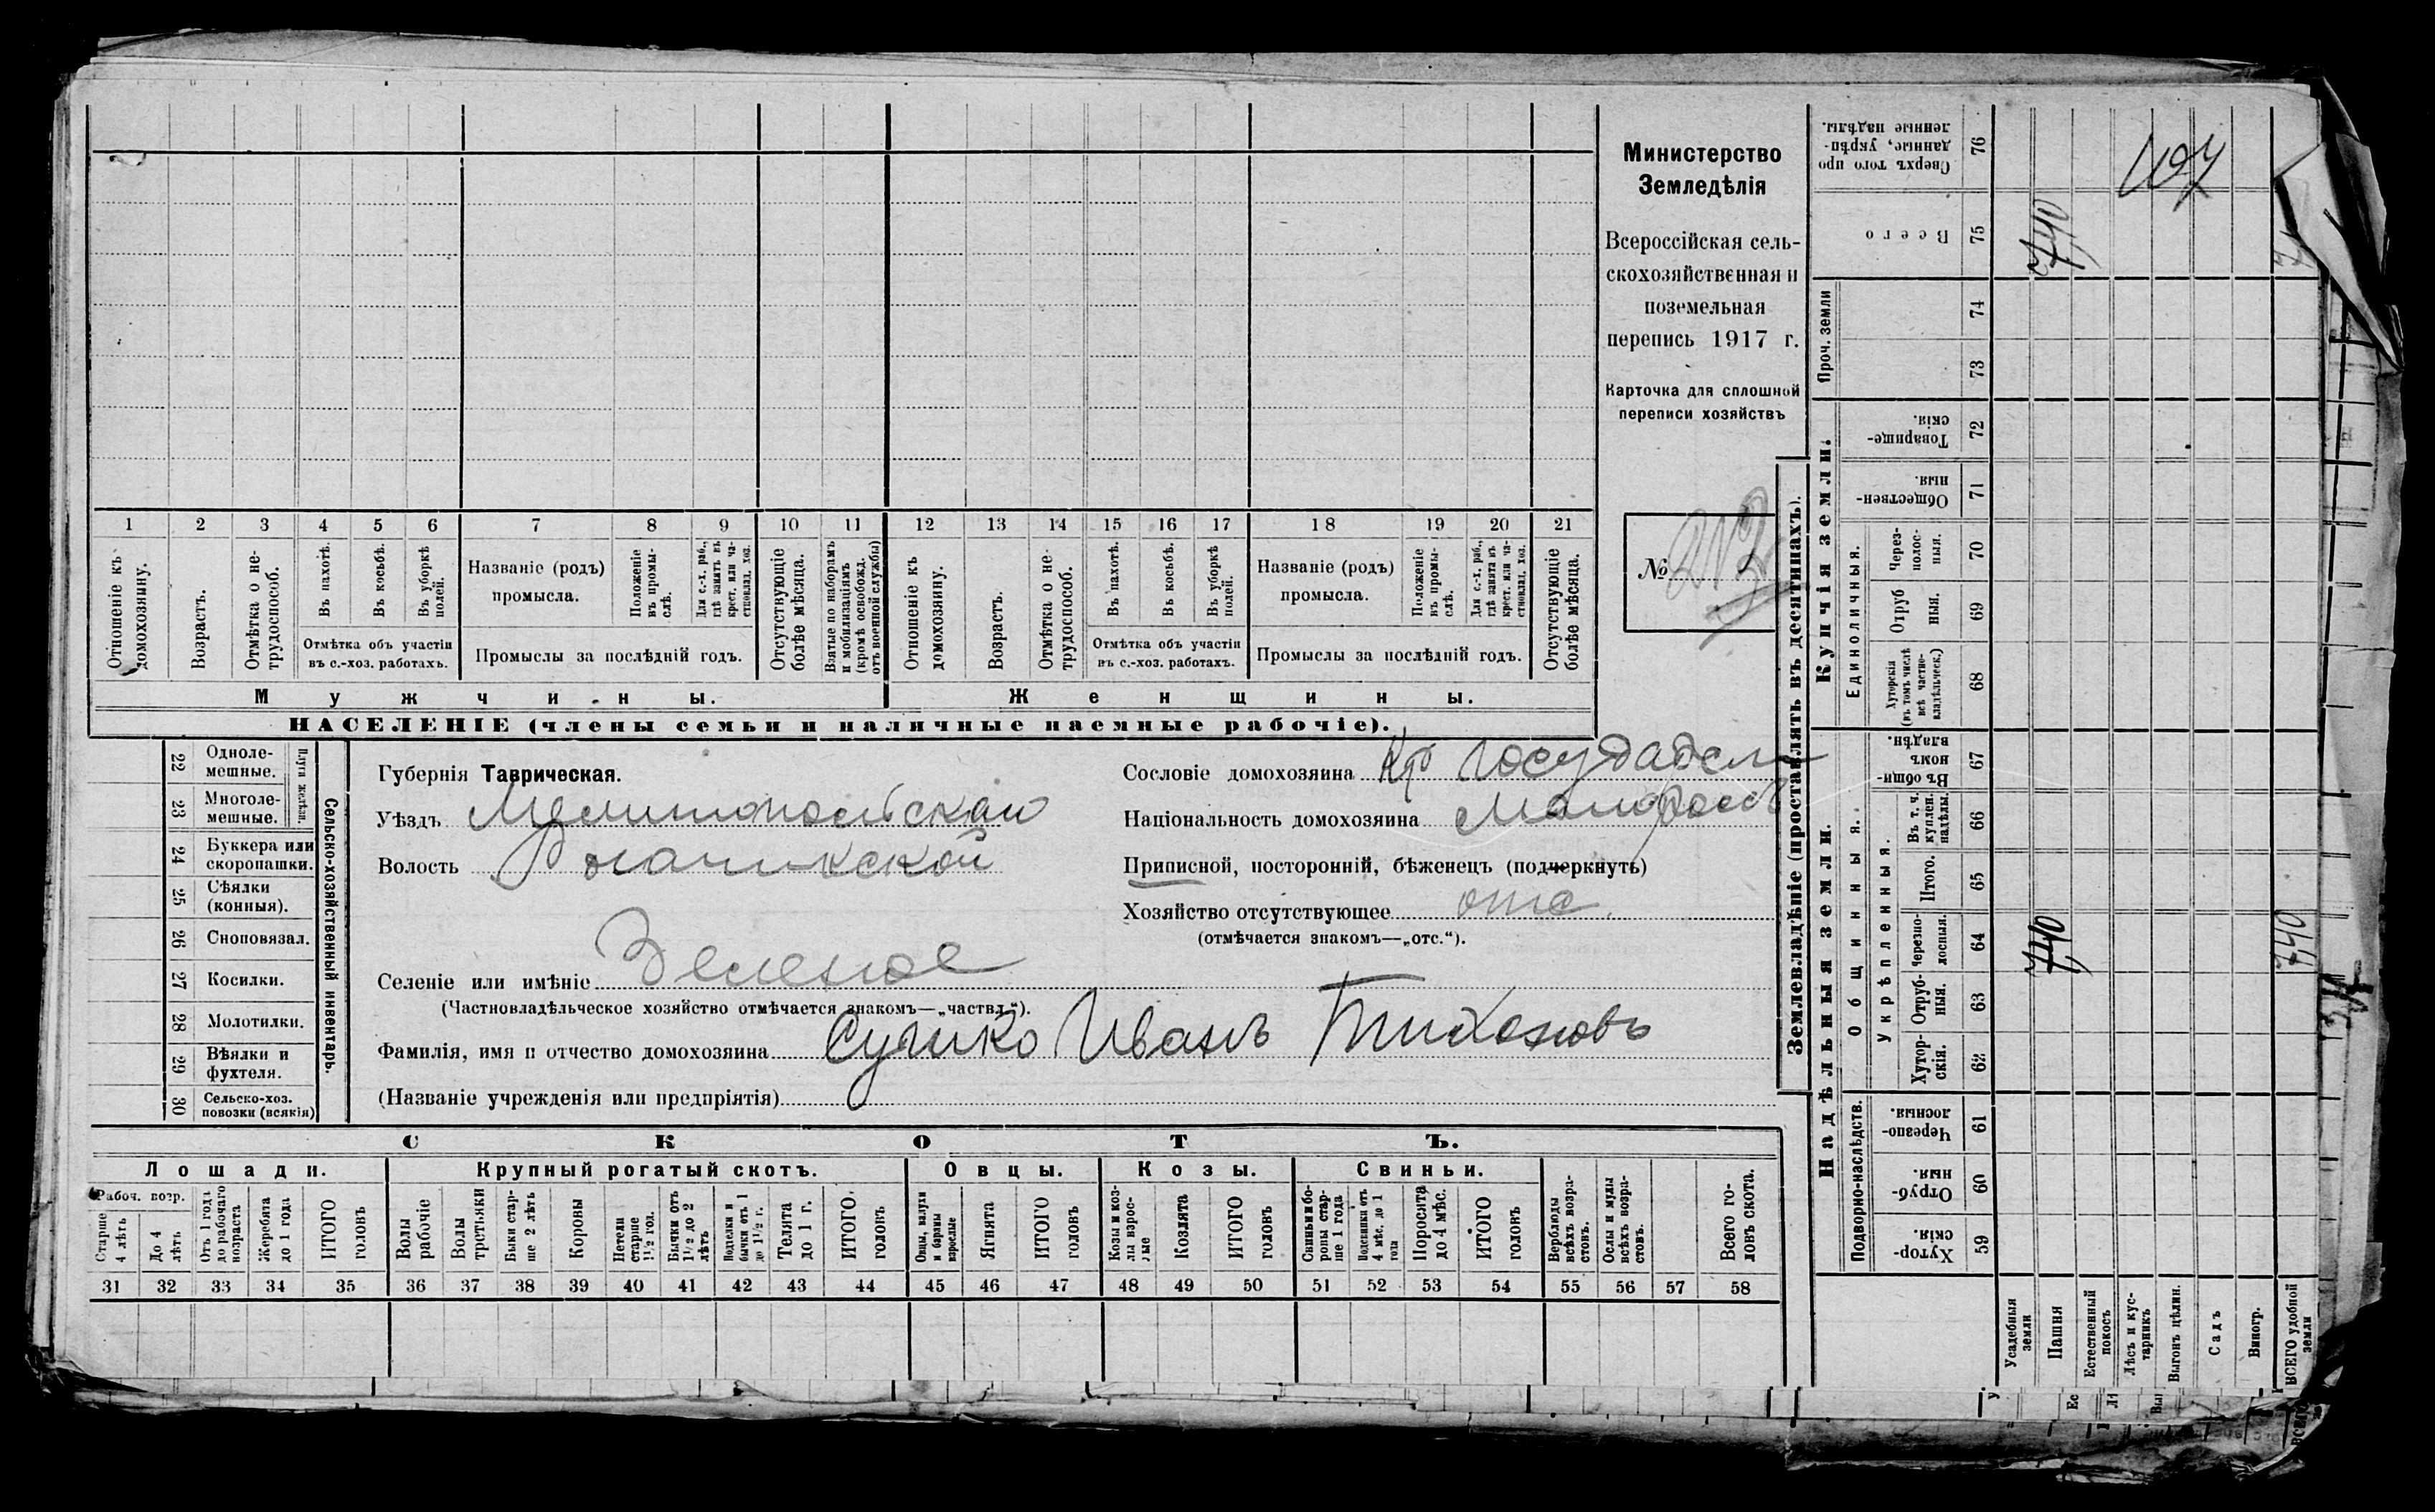 1 2 3 4 5 6 7 8 9 10 11 12 13 14 15 16 17 18 19 20 21
Отношеніе къ домохозяину.
Возрастъ.
Отмѣтка о не-
трудоспособ.
Въ пахотѣ.
Въ косьбѣ.
Въ уборкѣ
полей.
Отмѣтка объ участіи
въ с.-хоз. работахъ.
Названіе (родъ)
промысла.
Положеніе
въ промы-
слѣ.
Для с.-х. раб.,
гдѣ занятъ въ
крест. или ча-
стновлад. хоз.
Промыслы за послѣдній годъ.
Отсутствующіе
болѣе мѣсяца.
Взятые по наборамъ
и мобилизаціямъ
(кромѣ освобожд.
отъ военной службы)
Отношеніе къ
домохозяину.
Возрастъ.
Отмѣтка о не-
трудоспособ.
Въ пахотѣ.
Въ косьбѣ.
Въ уборкѣ
полей.
Отмѣтка объ участіи
въ с.-хоз. работахъ.
Названіе (родъ)
промысла.
Положеніе
въ промы-
слѣ.
Для с.-х. раб.,
гдѣ занята въ
крест. или ча-
стновлад. хоз.
Промыслы за послѣдній годъ.
Отсутствующіе
болѣе мѣсяца.
Мужчины.
Женщины.
НАСЕЛЕНІЕ (члены семьи и наличные наемные рабочіе).
Министерство
Земледѣлія
Всероссійская сель-
скохозяйственная и
поземельная
перепись 1917 г.
Карточка для сплошной
переписи хозяйствъ
№ 212
22 Одноле-
мешные.
23 Многоле-
мешные.
Плуги желѣзн.
24 Буккера или
скоропашки.
25 Сѣялки
(конныя).
26 Сноповязал.
27 Косилки.
28 Молотилки.
29 Вѣялки и
фухтеля.
30 Сельско-хоз.
повозки (всякія)
Сельско-хозяйственный инвентарь.
Губернія Таврическая.
Уѣздъ Мелитопольскаго
Волость Рогачикской
Селеніе или имѣніе Зеленое
(Частновладѣльческое хозяйство отмѣчается знакомъ—„частвл.“).
Фамилія, имя и отчество домохозяина Сучико Иванъ Тихоновъ
(Названіе учрежденія или предпріятія)
Сословіе домохозяина Кр
Національность домохозяина Малороссъ
Приписной, посторонній, бѣженецъ (подчеркнуть)
Хозяйство отсутствующее отс.
(отмѣчается знакомъ—„отс.“).
СКОТЪ.
Лошади.
Крупный рогатый скотъ.
Овцы.
Козы.
Свиньи.
Рабоч. возр.
Старше
4 лѣтъ
До 4
лѣтъ
Отъ 1 года
до рабочаго
возраста
Жеребята
до 1 года
ИТОГО
головъ
Волы
рабочіе
Волы
третьяки
Быки стар-
ше 2 лѣтъ
Коровы
Нетели
старше
1½ год.
Бычки отъ
1½ до 2
лѣтъ
Телки и
бычки отъ 1
до 1½ г.
Телята
до 1 г.
ИТОГО
головъ
Овцы, валухи
и бараны
взрослые
Ягнята
ИТОГО
головъ
Козы и коз-
лы взрос-
лые
Козлята
ИТОГО
головъ
Свиньи и бо-
ровы стар-
ше 1 года
Подсвинки отъ
4 мѣс. до 1
года
Поросята
до 4 мѣс.
ИТОГО
головъ
Верблюды
всѣхъ возра-
стовъ.
Ослы и мулы
всѣхъ возра-
стовъ.
Всего го-
ловъ скота.
31 32 33 34 35 36 37 38 39 40 41 42 43 44 45 46 47 48 49 50 51 52 53 54 55 56 57 58
Землевладѣніе (проставлять въ десятинахъ).
Надѣльныя земли.
Купчія земли.
Проч. земли
Подворно-наслѣдств.
Общинныя.
Укрѣпленныя.
Единоличныя.
Сверхъ того про
данные, укрѣп-
ленные надѣлы. 76
Всего 75
74
73
Товарище-
скія. 72
Обществен-
ныя. 71
Через-
полос-
ныя. 70
Отруб
ныя. 69
Хуторскія
(въ томъ числѣ
всѣ частно-
владѣльческ.) 68
Въ общин-
номъ
владѣн. 67
Въ т. ч.
куплен.
надѣлы. 66
Итого. 65
Черезпо-
лосныя. 64
Отруб-
ныя. 63
Хутор-
скія. 62
Черезпо-
лосныя. 61
Отруб-
ныя. 60
Хутор-
скія. 59
Усадебныя
земли
Пашня
Естественный
покосъ
Лѣсъ и кус-
тарникъ
Выгонъ цѣлин.
Садъ
Виногр.
ВСЕГО удобной
земли
740
740
740